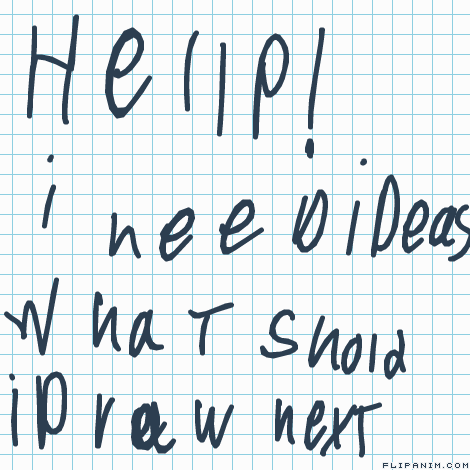 Hellp!
i neeD iDeas
What shold
i Draw next
FLIPANIM.COM